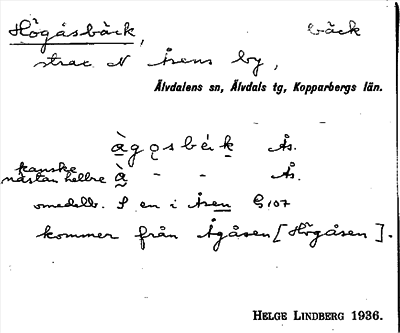 Högåsbäck, bäck
strax N Åsens by,
Älvdalens sn, Älvdals tg, Kopparbergs län.
à̱gǫsbèḵ Ås.
kanske
nästan hellre à̱ - - Ås.
omedelb. S en i Åsen G, 107
kommer från Ågåsen [Högåsen].
HELGE LINDBERG 1936.